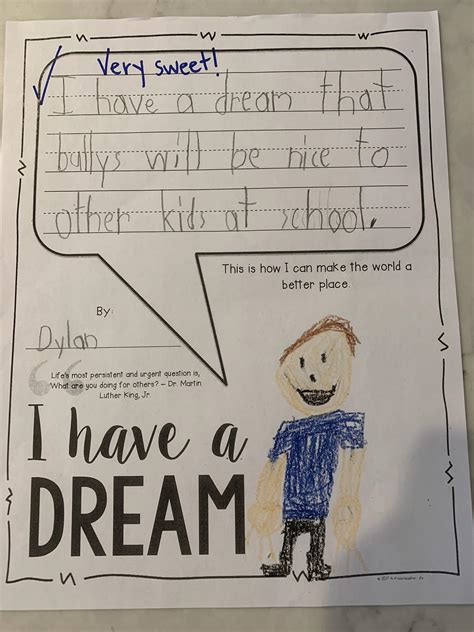 Very sweet!
I have a dream that
bullys will be nice to
other kids at school.
This is how I can make the world a
better place.
By:
Dylan
Life's most persistent and urgent question is,
What are you doing for others? – Dr. Martin
Luther King, Jr.
I have a
DREAM